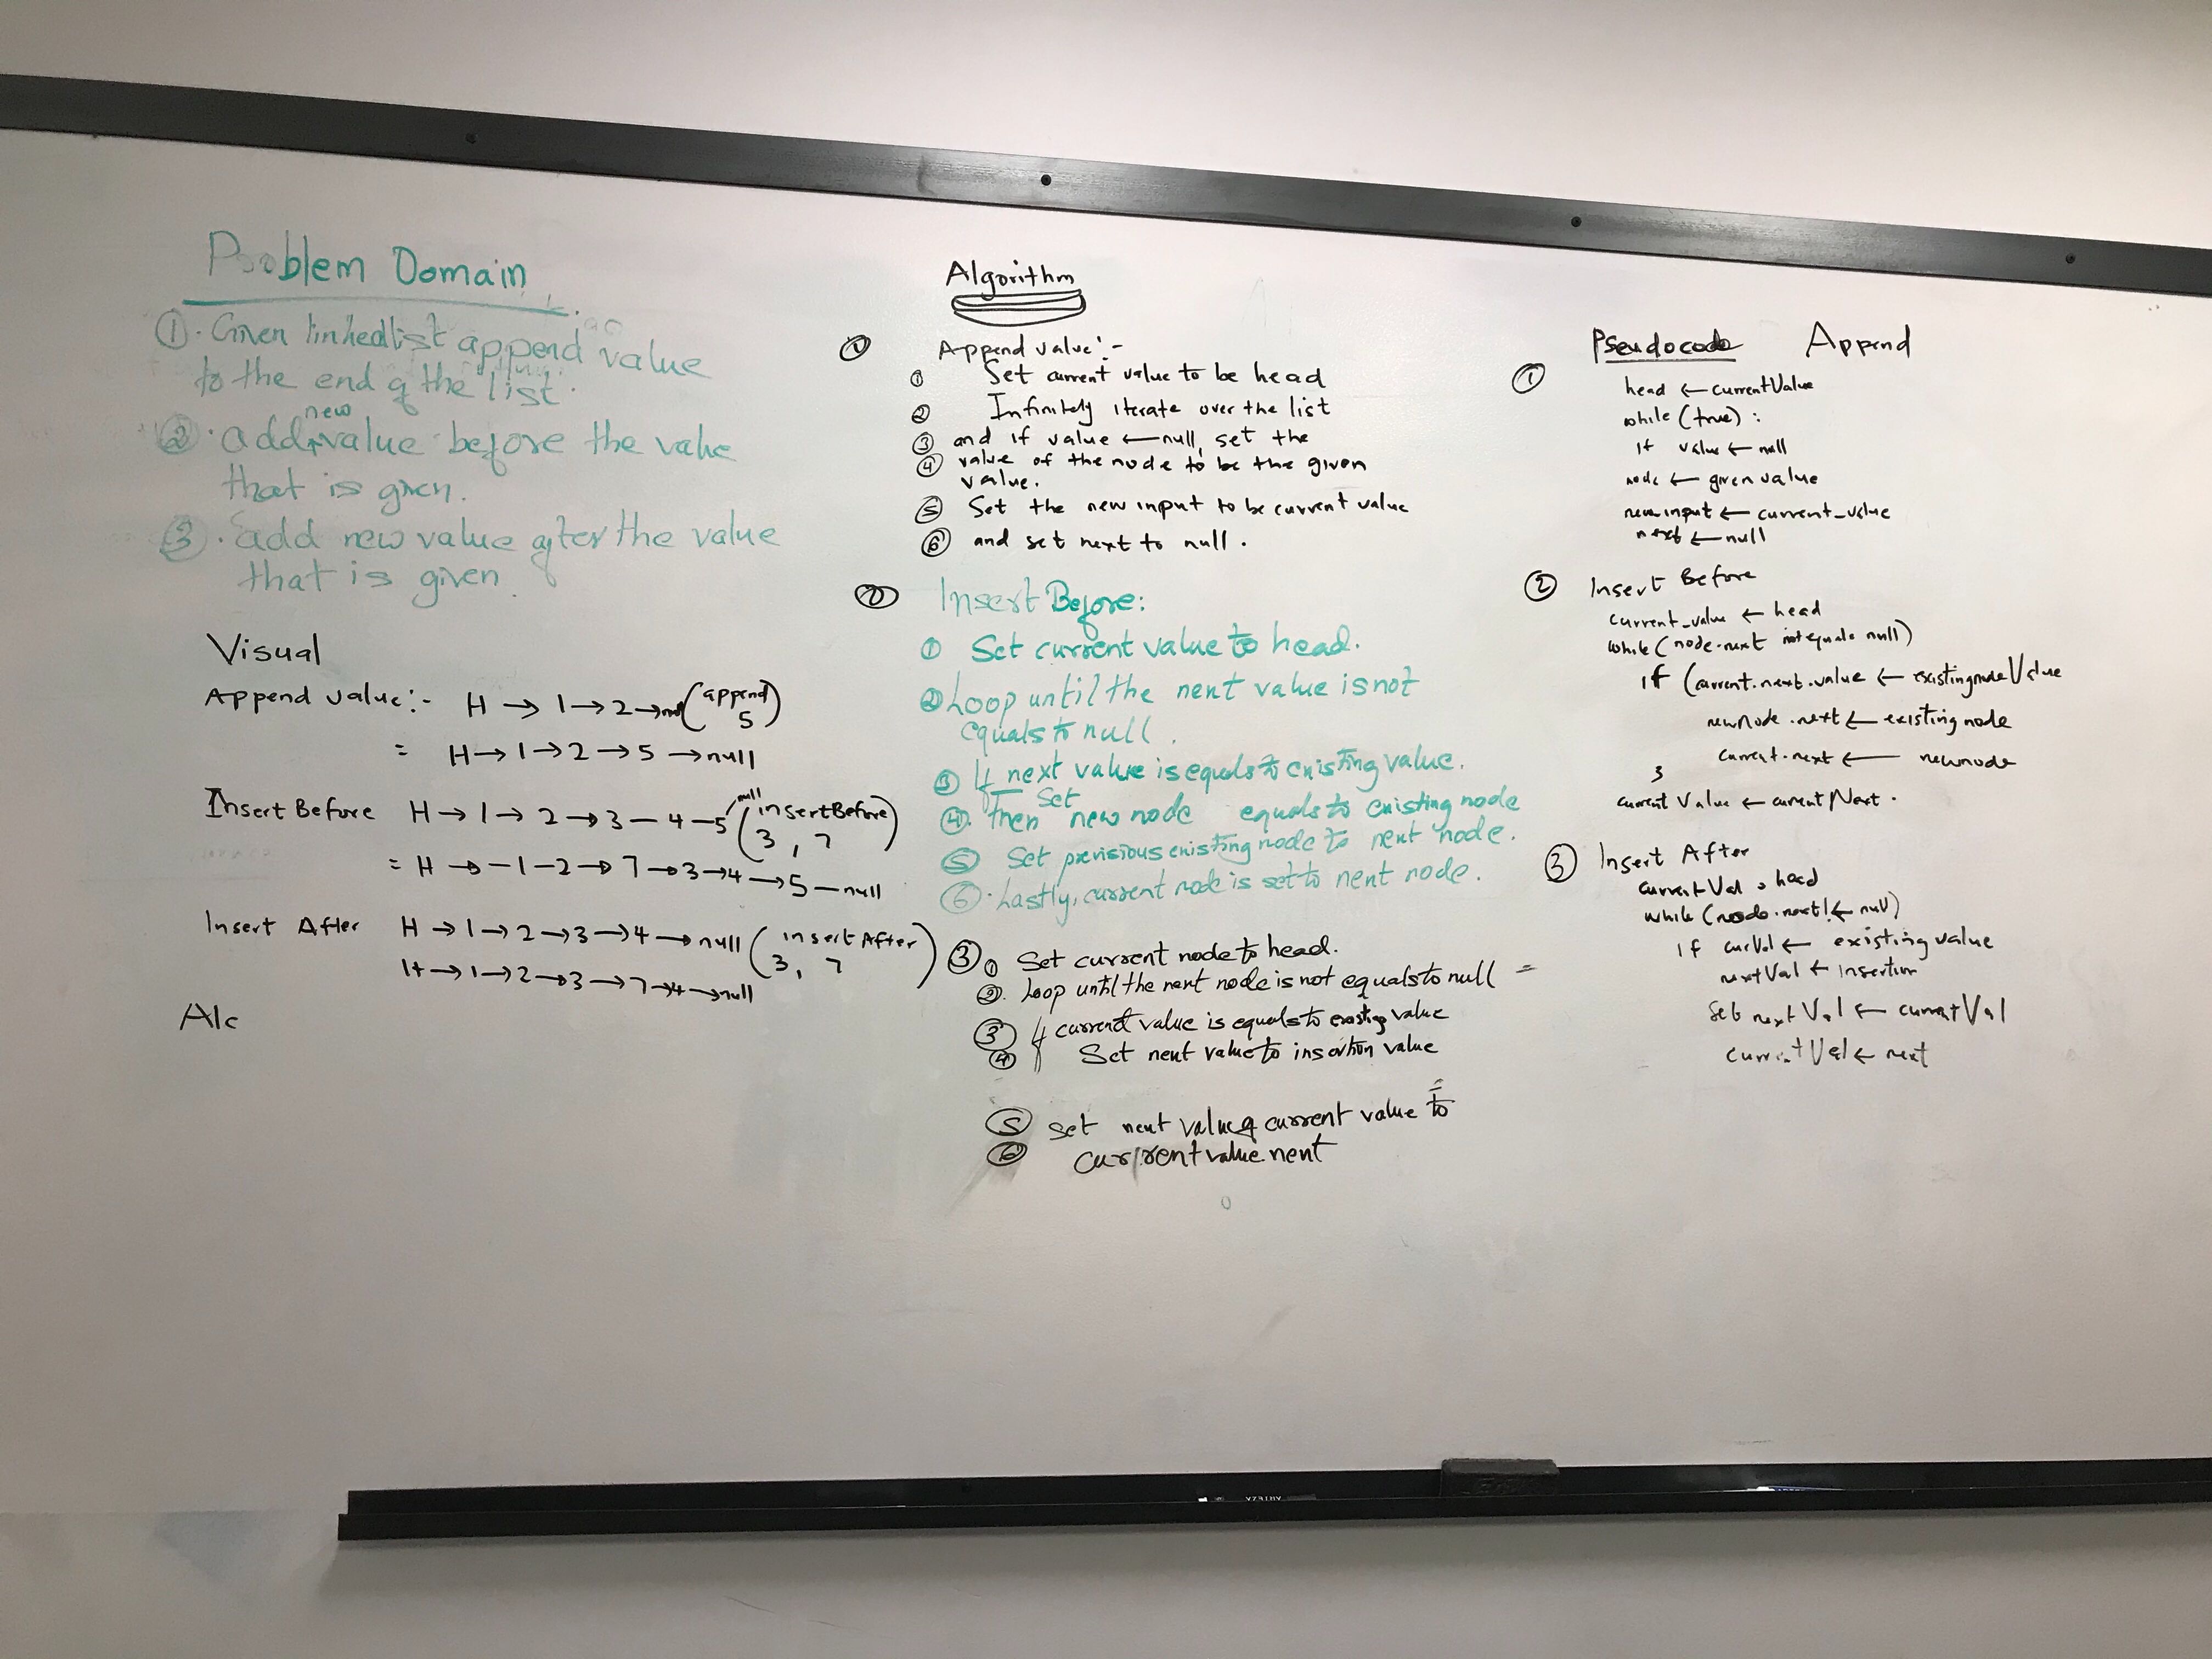 Problem Domain
① · Given linkedlist append value
to the end of the list.
② · add new value before the value
that is given.
③ · add new value after the value
that is given.
Visual
Append value:- H → 1 → 2 → null (append 5)
= H → 1 → 2 → 5 → null
Insert Before H → 1 → 2 → 3 — 4 — 5 null (insertBefore 3, 7)
= H → - 1 — 2 → 7 → 3 → 4 → 5 — null
Insert After H → 1 → 2 → 3 → 4 → null (insertAfter 3, 7)
H → 1 → 2 → 3 → 7 → 4 → null
Alc
Algorithm
① Append value:-
① Set current value to be head
② Infinitely iterate over the list
③ and if value ← null, set the
④ value of the node to be the given
value.
⑤ Set the new input to be current value
⑥ and set next to null.
② Insert Before:
① Set current value to head.
② Loop until the next value is not
equals to null.
③ If next value is equals to existing value.
④. Then set new node equals to existing node
⑤ Set previsious existing node to next node.
⑥ · Lastly, current node is set to next node.
③ ① Set current node to head.
②. Loop until the next node is not equals to null =
③ if current value is equals to existing value
④ Set next value to insertion value
=
⑤ set next value of current value to
⑥ current value next
Pseudocode Append
① head ← currentValue
while (true) :
if value ← null
node ← given value
new_input ← current_value
next ← null
② Insert Before
current_value ← head
while (node.next not equals null)
if (current.next.value ← existingnodeValue
newNode.next ← existing node
current.next ← newnode
}
current Value ← current Next.
③ Insert After
currentVal head
while (node.next! ← null)
if curVal ← existing value
nextVal ← Insertion
set nextVal ← currentVal
currentVal ← next